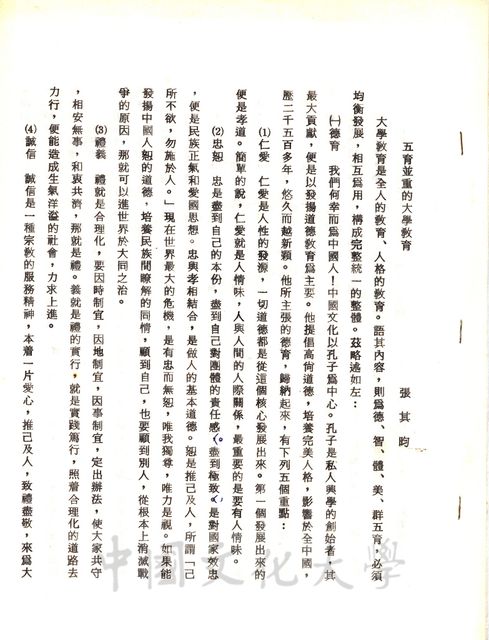 五育並重的大學教育
張其昀
大學教育是全人的教育、人格的教育。語其內容,則為德、智、體、美、群五育,必須
均衡發展,相互為用,構成完整統一的整體。茲略述如左:
㈠德育 我們何幸而為中國人!中國文化以孔子為中心。孔子是私人興學的創始者,其
最大貢獻,便是以發揚道德教育為主要。他提倡高尚道德,培養完美人格,影響於全中國,
歷二千五百多年,悠久而越新穎。他所主張的德育,歸納起來,有下列五個重點:
⑴仁愛 仁愛是人性的發源,一切道德都是從這個核心發展出來。第一個發展出來的
便是孝道。簡單的說,仁愛就是人情味,人與人間的人際關係,最重要的是要有人情味。
⑵忠恕 忠是盡到自己的本份,盡到自己對團體的責任感。盡到極致,是對國家效忠
,便是民族正氣和愛國思想。忠與孝相結合,是做人的基本道德。恕是推己及人,所謂「己
所不欲,勿施於人。」現在世界最大的危機,是有忠而無恕,唯我獨尊,唯力是視。如果能
發揚中國人恕的道德,培養民族間瞭解的同情,顧到自己,也要顧到別人,從根本上消滅戰
爭的原因,那就可以進世界於大同之治。
⑶禮義 禮就是合理化,要因時制宜,因地制宜,因事制宜,定出辦法,使大家共守
,相安無事,和衷共濟,那就是禮。義就是禮的實行,就是實踐篤行,照着合理化的道路去
力行,便能造成生氣洋溢的社會,力求上進。
⑷誠信 誠信是一種宗教的服務精神,本着一片愛心,推己及人,致禮盡敬,來為大
中國文化大學